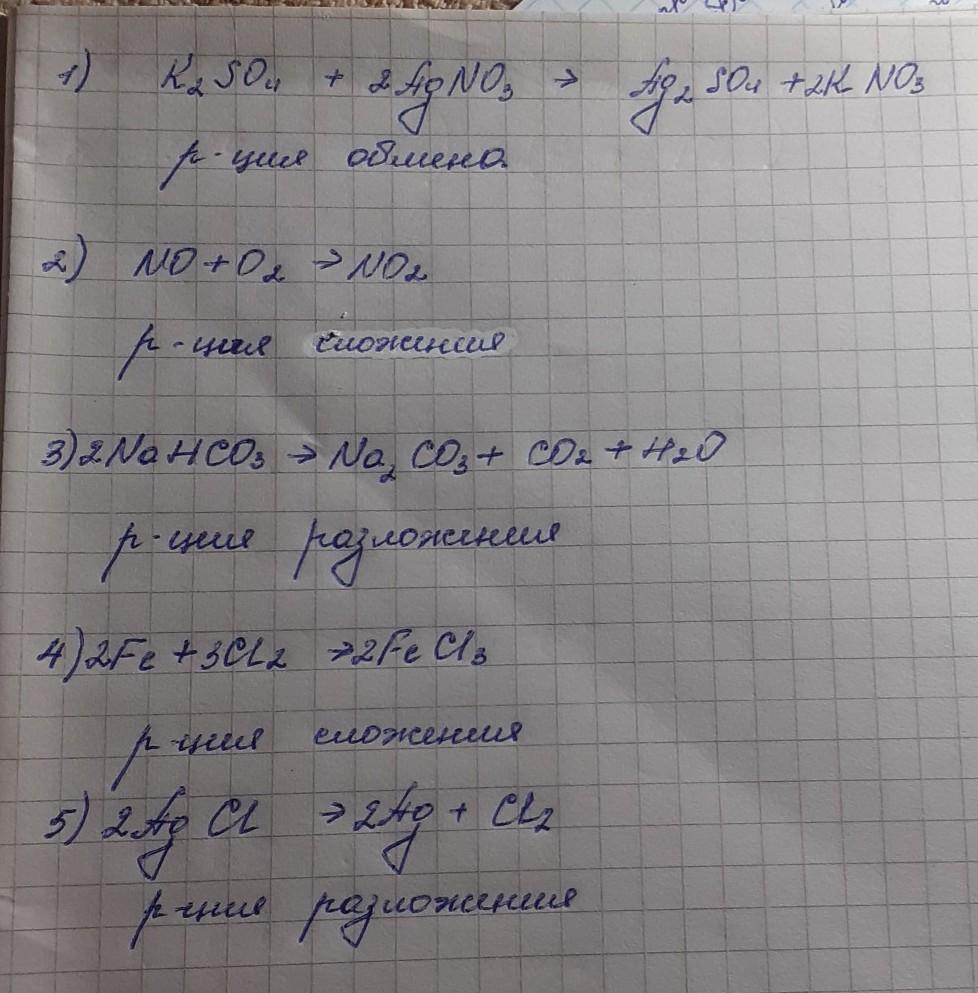 1) K₂SO₄ + 2AgNO₃ → Ag₂SO₄ + 2KNO₃
р-ция обмена
2) NO + O₂ → NO₂
р-ция сложения
3) 2NaHCO₃ → Na₂CO₃ + CO₂ + H₂O
р-ция разложения
4) 2Fe + 3Cl₂ → 2FeCl₃
р-ция сложения
5) 2AgCl → 2Ag + Cl₂
р-ция разложения